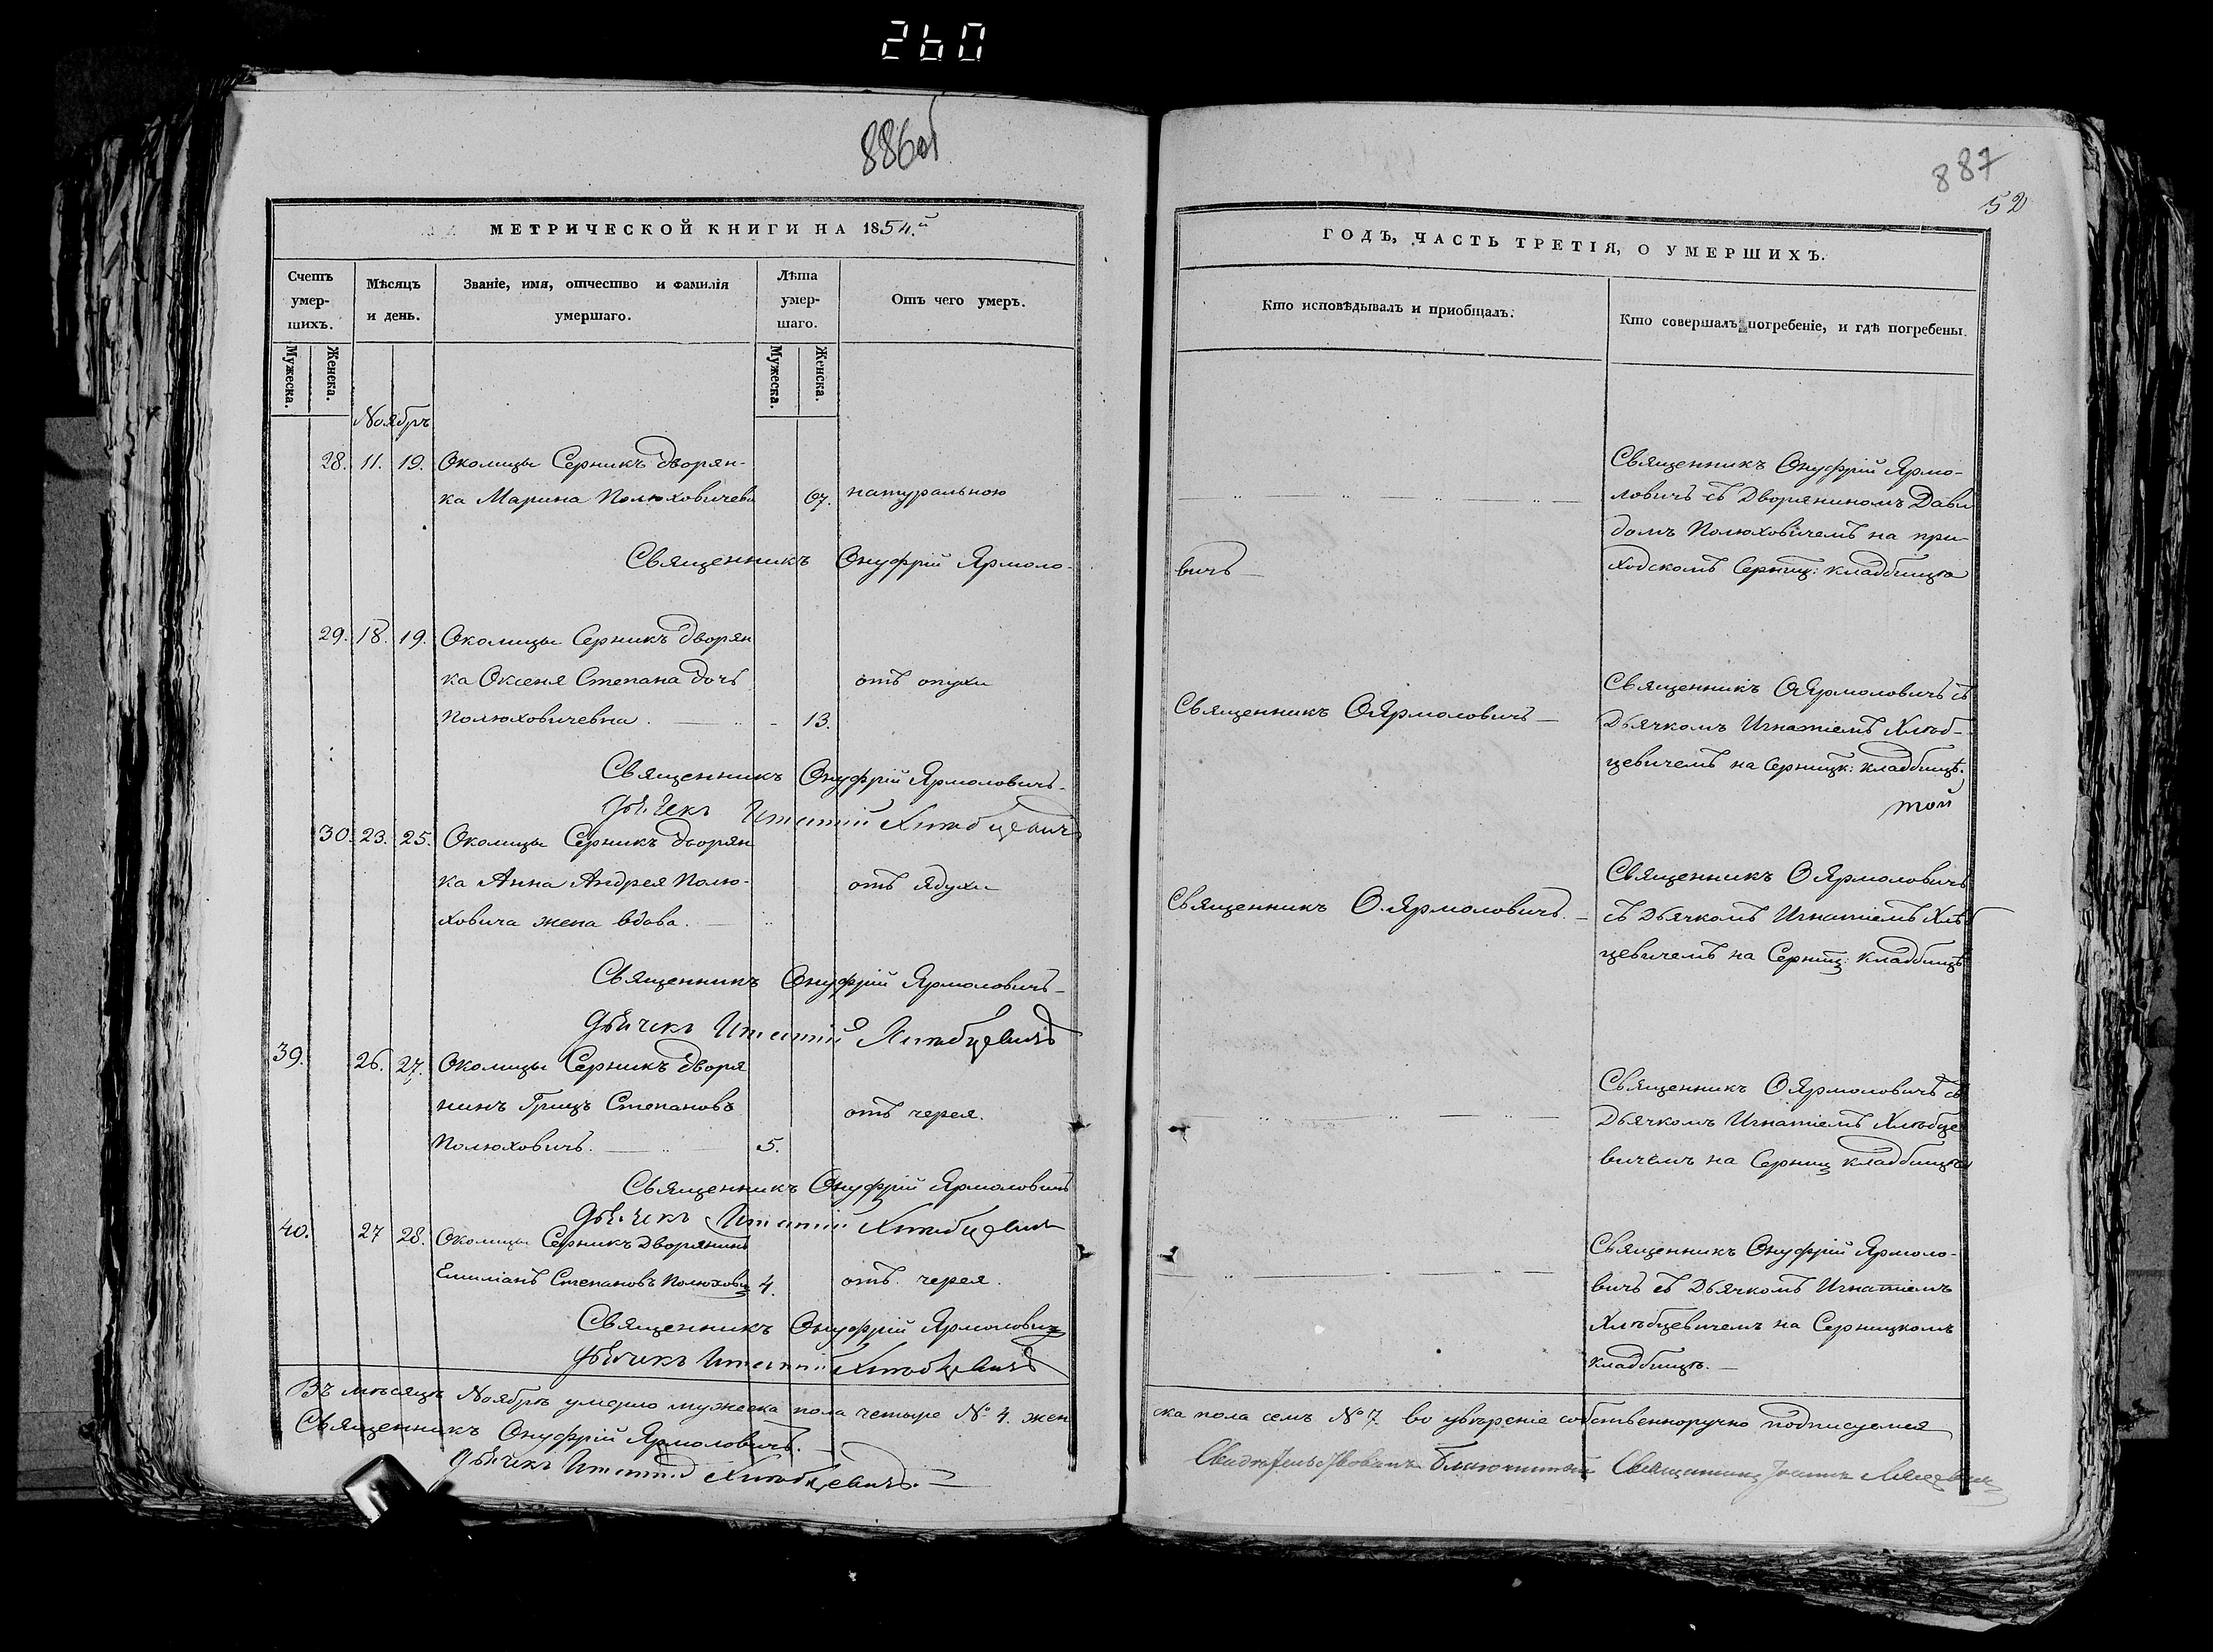 260
886об
МЕТРИЧЕСКОЙ КНИГИ НА 1854.й
Счетъ умер-шихъ.
Мѣсяцъ и день.
Званіе, имя, отчество и фамилія умершаго.
Лѣта умер-шаго.
Отъ чего умеръ.
Мужеска.
Женска.
Мужеска.
Женска.
Ноябрь
28. 11. 19. Околицы Серникъ дворян-
ка Марина Полюховичева 67. натуральною
Священникъ Онуфрій Ярмоло-
29. 18. 19. Околицы Серникъ дворян
ка Оксеня Степана дочь отъ опухи
Полюховичевна. 13.
Священникъ Онуфрій Ярмоловичъ
Дьячекъ Игнатій Хлѣбцевичъ
30. 23. 25. Околицы Серникъ дворян
ка Анна Андрея Полю- отъ ядухи
ховича жена вдова.
Священникъ Онуфрій Ярмоловичъ
Дьячекъ Игнатій Хлѣбцевичъ
39. 26. 27. Околицы Серникъ дворя
нинъ Грицъ Степановъ отъ черея.
Полюховичъ. 5.
Священникъ Онуфрій Ярмоловичъ
Дьячекъ Игнатій Хлѣбцевичъ
40. 27 28. Околицы Серникъ Дворянинъ
Емиліанъ Степановъ Полюхович 4. отъ черея.
Священникъ Онуфрій Ярмоловичъ
Дьячекъ Игнатій Хлѣбцевичъ
Въ мѣсяцѣ Ноябрѣ умерло мужеска пола четыре № 4. жен
Священникъ Онуфрій Ярмоловичъ.
Дьячекъ Игнатій Хлѣбцевичъ.
887
52
ГОДЪ, ЧАСТЬ ТРЕТІЯ, О УМЕРШИХЪ.
Кто исповѣдывалъ и приобщалъ.
Кто совершалъ погребеніе, и гдѣ погребены.
Священникъ Онуфрій Ярмо-
ловичъ съ Дворяниномъ Дави
домъ Полюховичемъ на при-
вичъ
ходскомъ Серниц: кладбищѣ
Священникъ О Ярмоловичъ
Священникъ О Ярмоловичъ съ
Дьячкомъ Игнатіемъ Хлѣб-
цевичемъ на Серницк: кладбищѣ.
той
Священникъ О. Ярмоловичъ.
Священникъ О Ярмоловичъ
съ Дьячкомъ Игнатіемъ Хлѣб
цевичемъ на Серниц: кладбищѣ
Священникъ О Ярмоловичъ съ
Дьячкомъ Игнатіемъ Хлѣбце
вичемъ на Серниц кладбищѣ
Священникъ Онуфрій Ярмоло-
вичъ съ Дьячкомъ Игнатіемъ
Хлѣбцевичемъ на Серницкомъ
кладбищѣ.
ска пола семь № 7 во увѣреніе собственноручно подписуемся
Свидѣтельствовалъ Благочинный Священникъ Іоаннъ